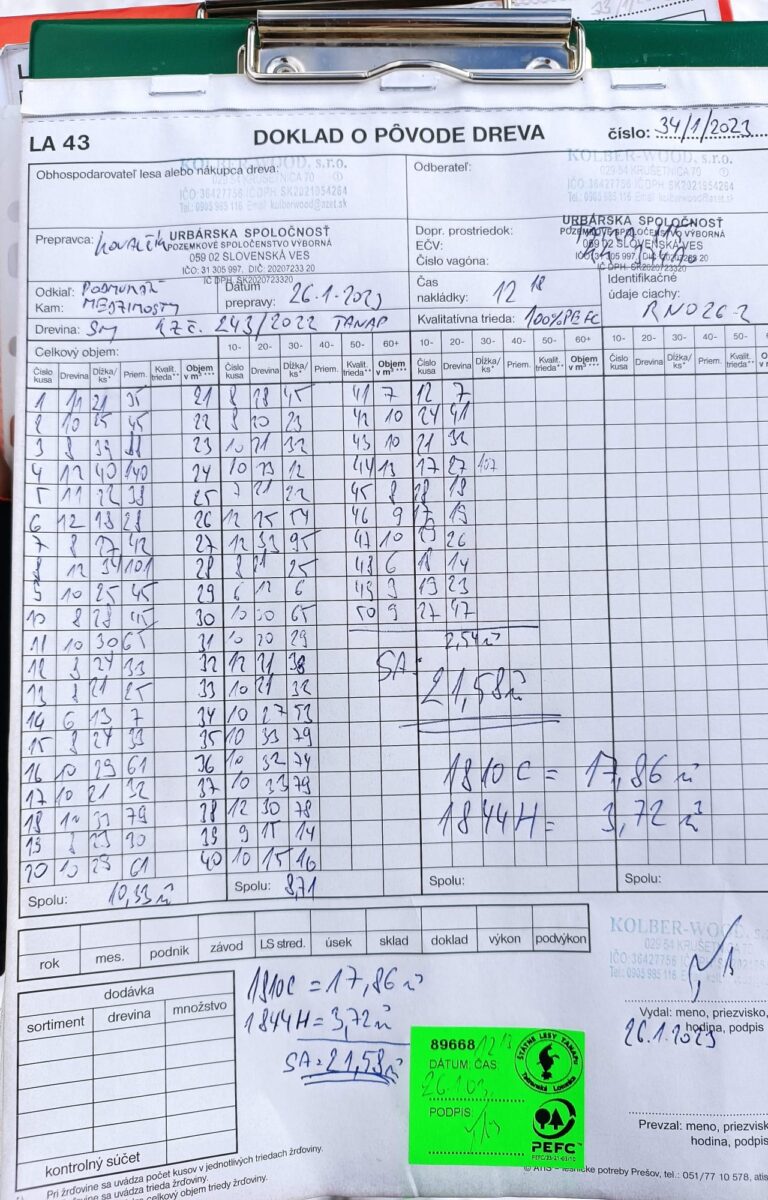 LA 43
DOKLAD O PÔVODE DREVA
číslo: 34/1/2023
Obhospodarovateľ lesa alebo nákupca dreva:
KOLBER-WOOD, s.r.o.
029 54 KRUŠETNICA 70
IČO:36427756 IČ DPH: SK2021954264
Tel.: 0905 985 116 Email: kolberwood@azet.sk
Odberateľ:
KOLBER-WOOD, s.r.o.
029 54 KRUŠETNICA 70
IČO:36427756 IČ DPH: SK2021954264
Prepravca:
URBÁRSKA SPOLOČNOSŤ
POZEMKOVÉ SPOLOČENSTVO VÝBORNÁ
059 02 SLOVENSKÁ VES
IČO: 31 305 997, DIČ: 20207233 20
IČ DPH: SK2020723320
Dopr. prostriedok:
EČV:
Číslo vagóna:
URBÁRSKA SPOLOČNOSŤ
059 02 SLOVENSKÁ VES
Odkiaľ:
Kam: MEDZIMOSTY
Dátum prepravy: 26.1.2023
Čas nakládky: 12 18
Identifikačné údaje ciachy: RN026-2
Drevina: SM
243/2022 TANAP
Kvalitatívna trieda: 100% PEFC
Celkový objem: 10- 20- 30- 40- 50- 60+ 10- 20- 30- 40- 50- 60+ 10- 20- 30- 40- 50-
Číslo kusa Drevina Dĺžka/ ks* Priem. Kvalit. trieda** Objem v m³ *** Číslo kusa Drevina Dĺžka/ ks* Priem. Kvalit. trieda** Objem v m³ *** Číslo kusa Drevina Dĺžka/ ks* Priem. Kvalit. trieda** Objem v m³ *** Číslo kusa Drevina Dĺžka/ ks* Priem. Kvalit. trieda**
1 11 21 35 21 8 28 45 41 7 12 7
2 10 25 45 22 8 20 23 42 10 24 41
3 8 23 10 21 32 43 10 21 32
4 12 40 140 24 10 13 12 44 13 17 27
5 11 22 38 25 7 21 22 45 8 18 18
6 12 18 28 26 12 25 54 46 9 17 19
7 8 27 42 27 12 33 95 47 10 19 26
8 12 34 101 28 8 21 25 48 6 18 14
9 10 25 45 29 6 12 6 49 9 19 23
10 8 28 45 30 10 30 65 50 9 27 47
11 10 30 65 31 10 20 29
2,54 m³
12 8 24 33 32 12 21 38
SA:
13 8 21 25 33 10 21 32
21,58 m³
14 6 13 7 34 10 27 53
15 8 24 33 35 10 33 79
16 10 29 61 36 10 32 74
1810C = 17,86 m³
17 10 21 32 37 10 33 79
18 10 33 79 38 12 30 78
1844H = 3,72 m³
19 8 23 30 39 9 15 14
20 10 29 61 40 10 15 16
Spolu: 10,33 m³ Spolu: 8,71 Spolu: Spolu:
rok mes. podnik závod LS stred. úsek sklad doklad výkon podvýkon
KOLBER-WOOD, s.
029 54 KRUŠETNICA
dodávka
sortiment drevina množstvo
kontrolný súčet
1810C = 17,86 m³
1844H = 3,72 m³
SA = 21,58 m³
89668
DÁTUM: ČAS:
PODPIS:
ŠTÁTNE LESY TANAPU
Tatranská Lomnica
PEFC™
Vydal: meno, priezvisko,
hodina, podpis
26.1.2023
Prevzal: meno, priezvisk
hodina, podpis
Pri žrďovine sa uvádza počet kusov v jednotlivých triedach žrďoviny.
sa uvádza trieda žrďoviny.
celkový objem triedy žrďoviny.
potreby Prešov, tel.: 051/77 10 578, atis